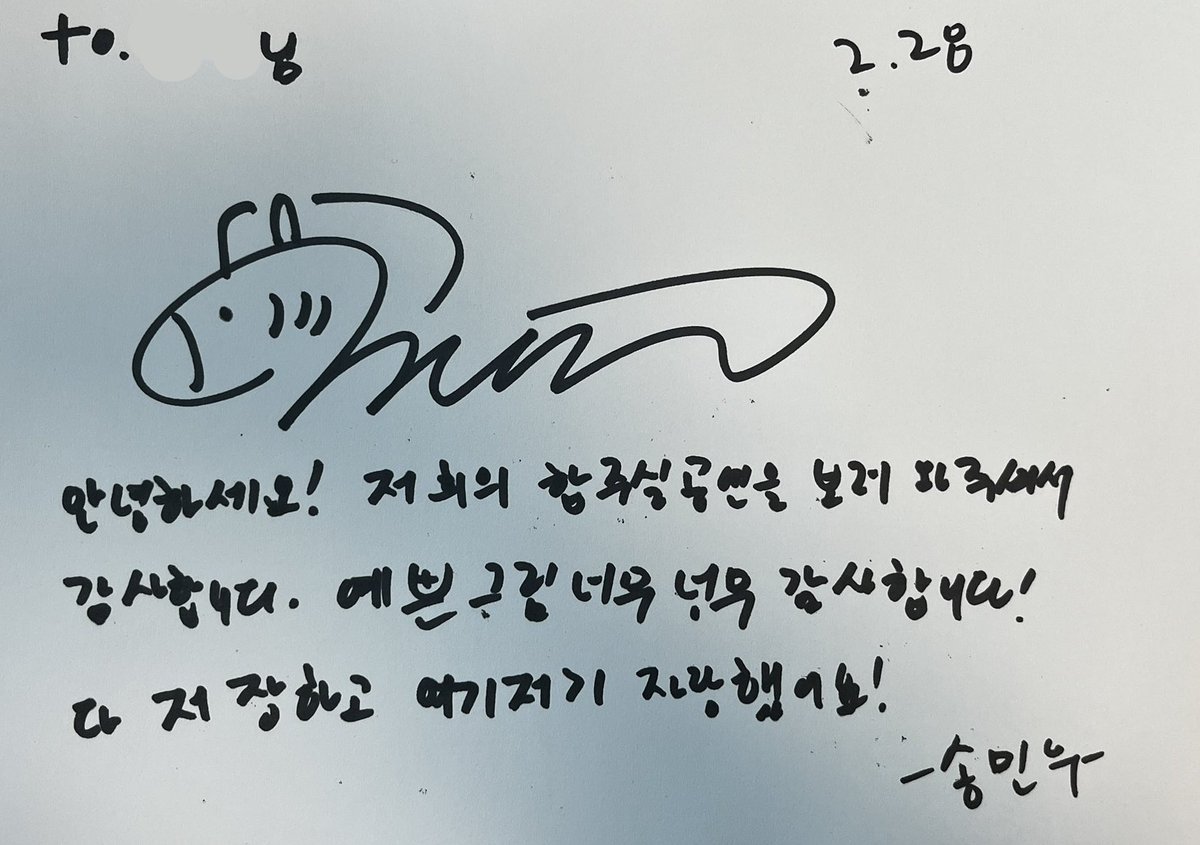 to. 님 2.28
안녕하세요! 저희의 합주실공연을 보러 와주셔서
감사합니다. 예쁜 그림 너무 너무 감사합니다!
다 저장하고 여기저기 자랑했어요!
-송민우-